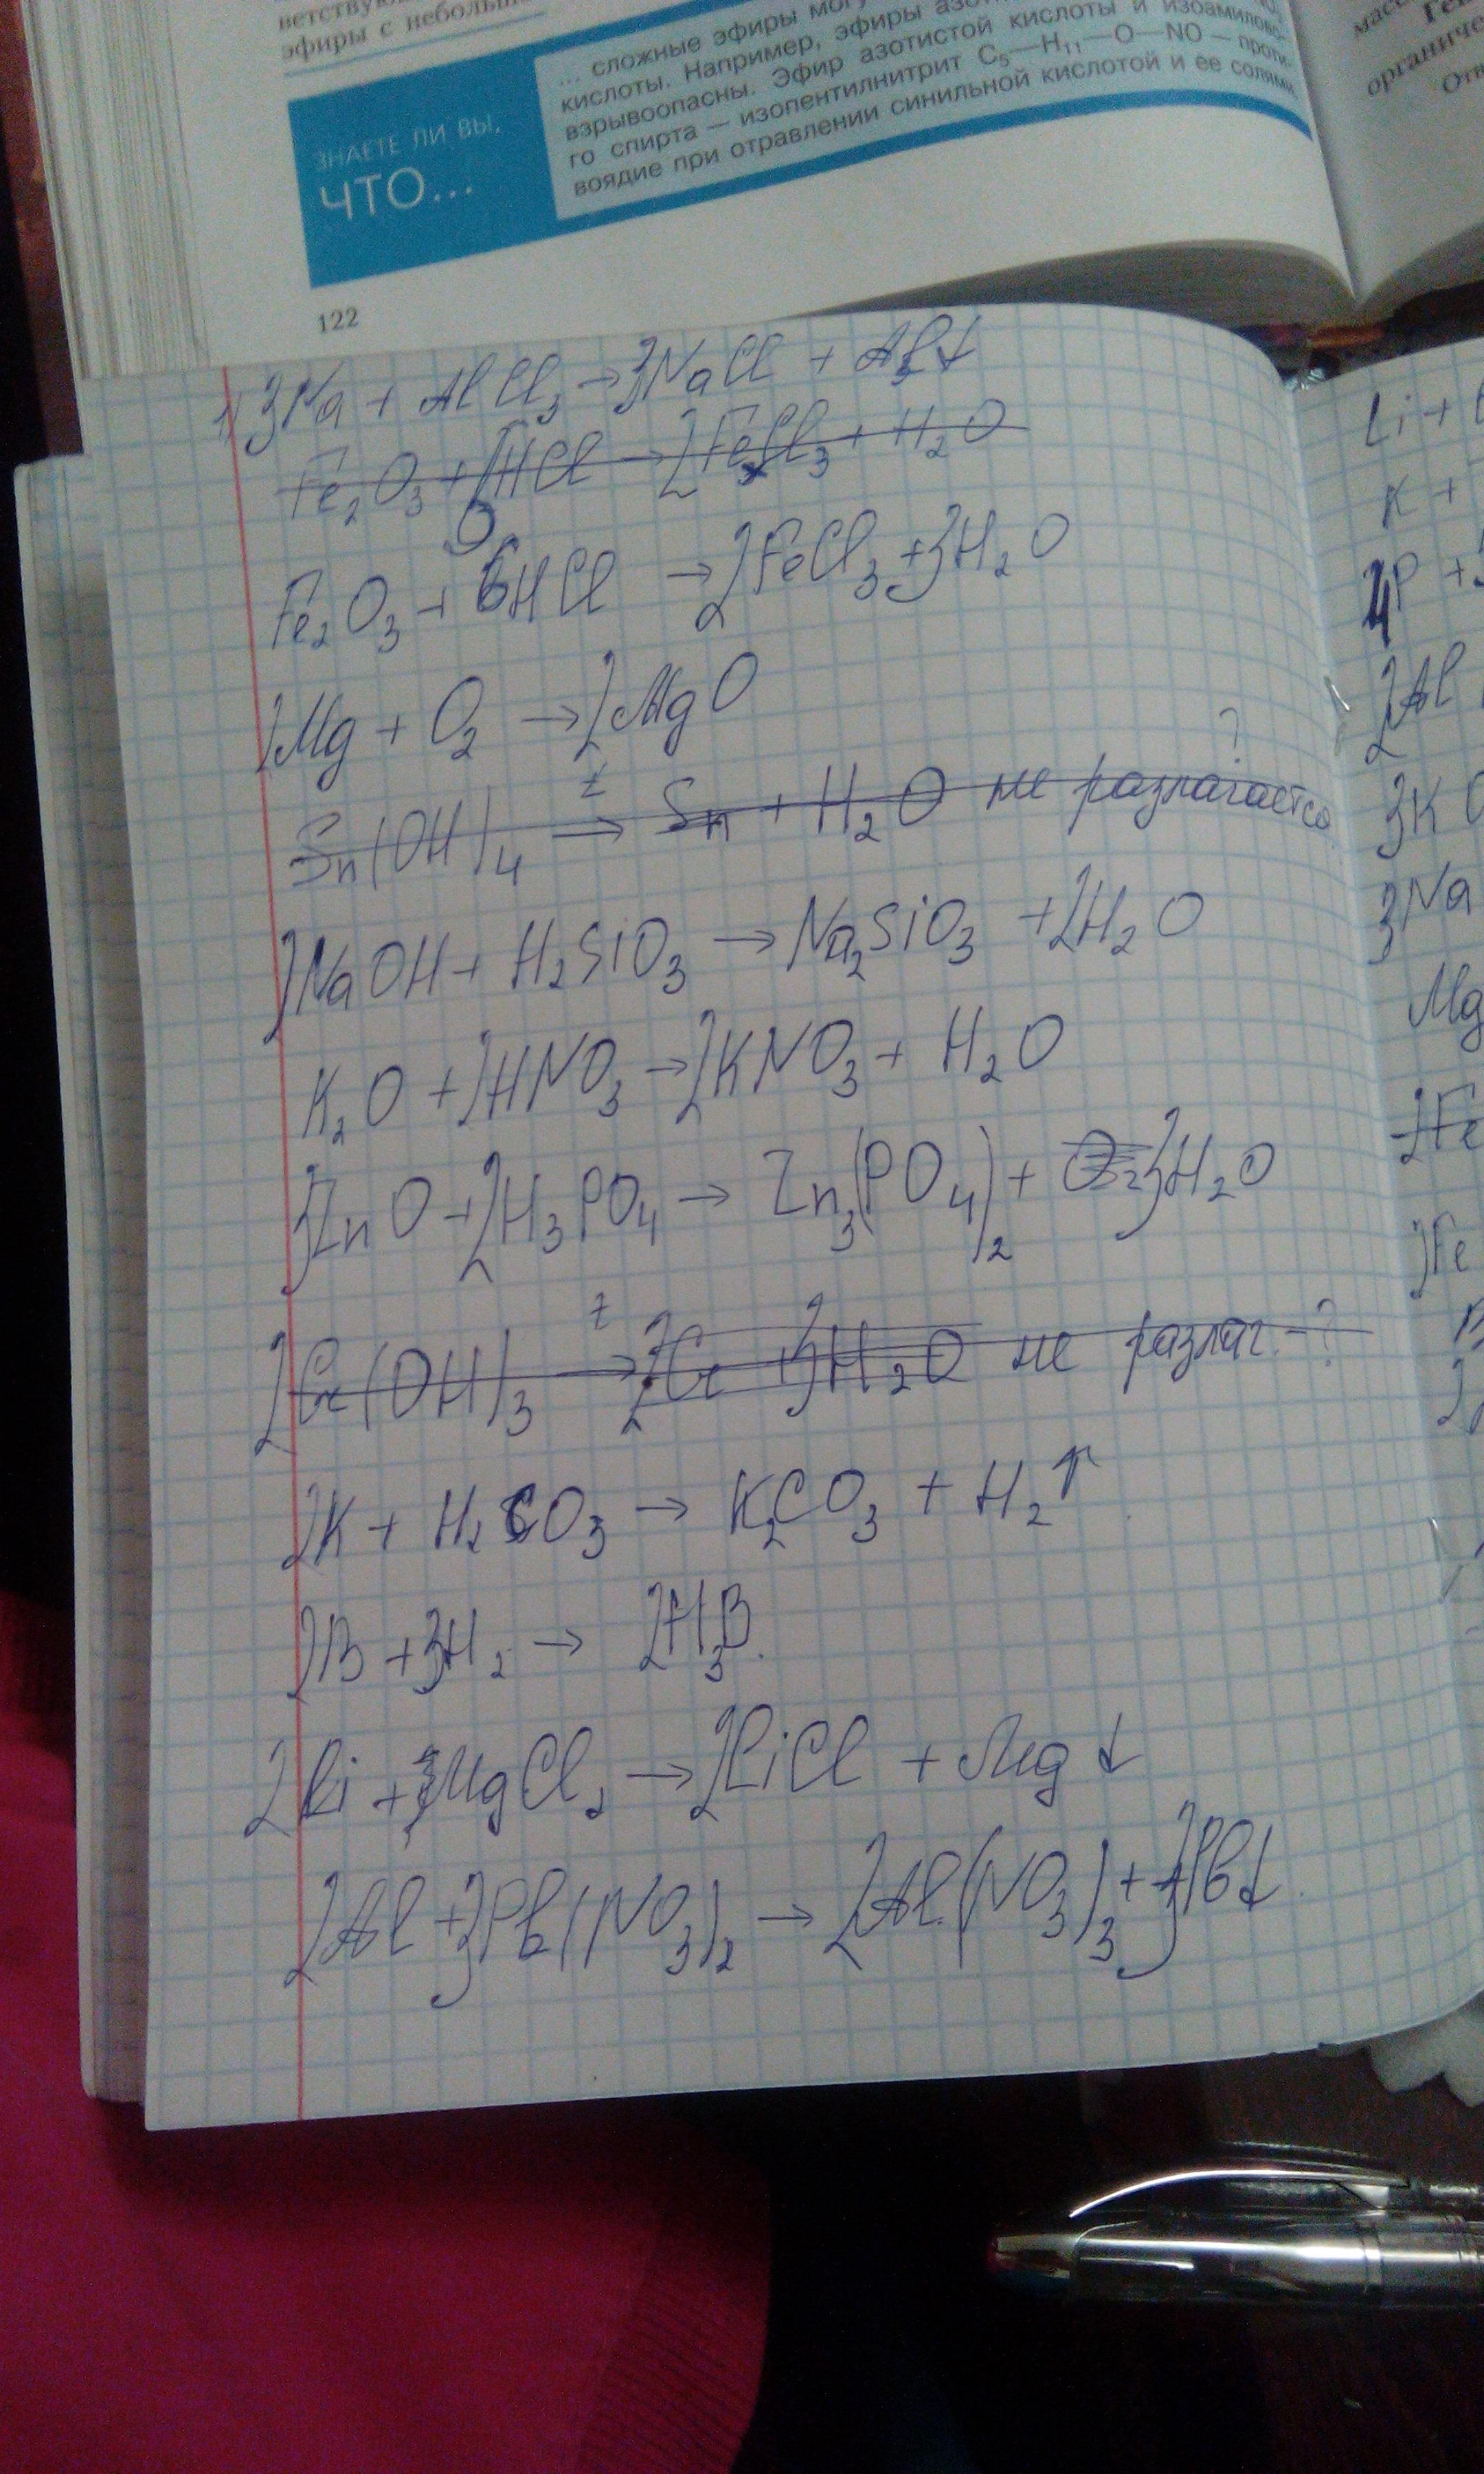 ветствую
эфиры с небольш
ЗНАЕТЕ ЛИ ВЫ,
ЧТО...
... сложные эфиры могу
кислоты. Например, эфиры азот
взрывоопасны. Эфир азотистой кислоты и изоамилово-
го спирта — изопентилнитрит C₅—H₁₁—O—NO — проти-
воядие при отравлении синильной кислотой и ее солями.
масс
Ген
органиче
Отв
122
1) 3Na + AlCl₃ → 3NaCl + Al↓
Fe₂O₃ + HCl → 2FeCl₃ + H₂O
Fe₂O₃ + 6HCl → 2FeCl₃ + 3H₂O
2Mg + O₂ → 2MgO
Sn(OH)₄ t→ Sn + H₂O не разлагается ?
2NaOH + H₂SiO₃ → Na₂SiO₃ + 2H₂O
K₂O + 2HNO₃ → 2KNO₃ + H₂O
3ZnO + 2H₃PO₄ → Zn₃(PO₄)₂ + 3H₂O
2Cr(OH)₃ t→ 2Cr + 3H₂O не разлаг. - ?
2K + H₂CO₃ → K₂CO₃ + H₂↑
2B + 3H₂ → 2H₃B.
2Li + MgCl₂ → 2LiCl + Mg↓
2Al + 3Pb(NO₃)₂ → 2Al(NO₃)₃ + 3Pb↓
Li +
K +
4P +
2Al
3K
3Na
Mg
2Fe
2Fe